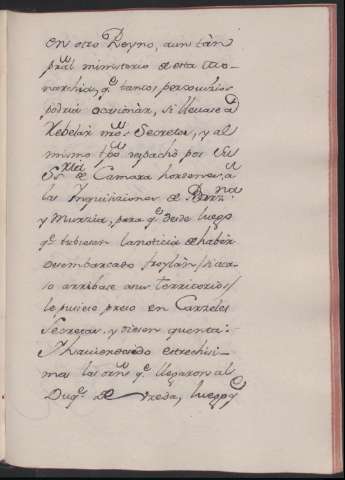 en otro Reyno, aun tàn
pral ministerio de esta Mo-
narchia, qe tantos perjuhicios
podria ocasionàr, si llevase a
Rebelàr nros Secretos, y al
mismo tpo despachò por Su
Sria de Camara hordenes, à
las Inquisiziones de Barzna
y Murzia, para qe desde luego
qe tubiesen la noticia de haber
desembarcado froylàn/si aca-
so arribase a sus territorios/
le pusiese preso en Carzeles
Secretas, y diesen quenta:
Y haviendo sido estrechisi-
mas las ordns qe llegaron al
Duqe de Uzeda, luego qe